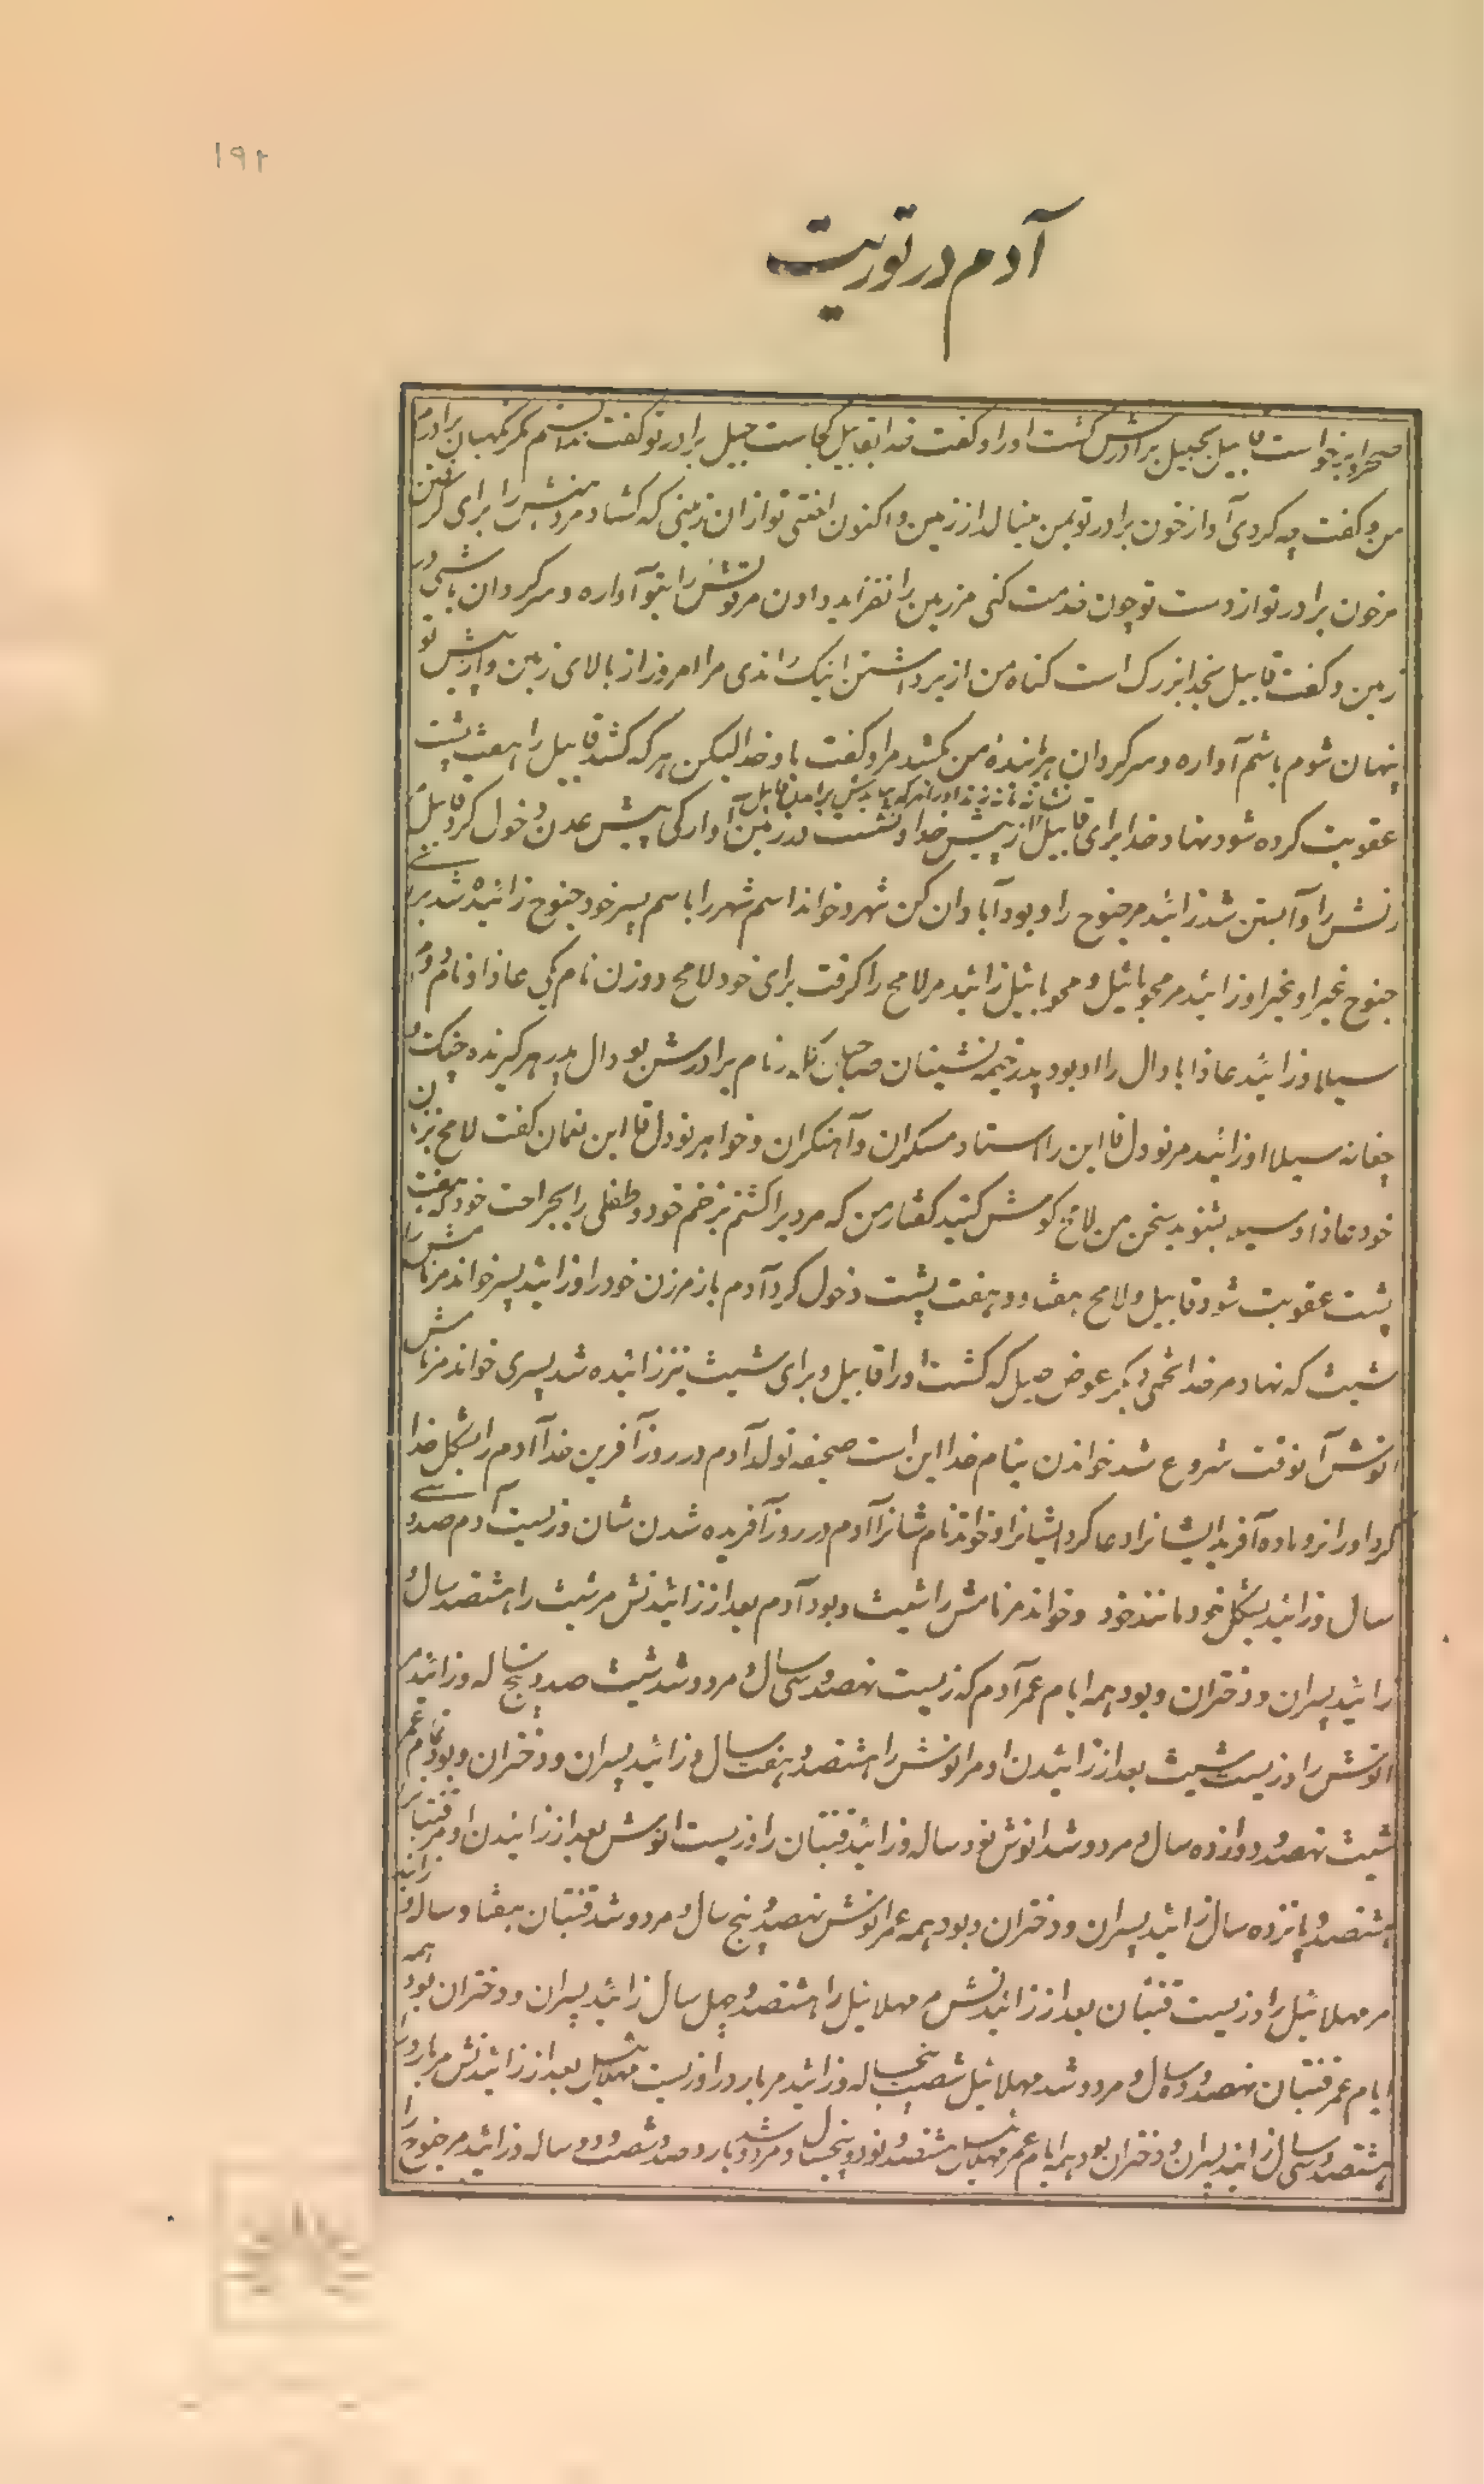 ۱۹۲
آدم در توریت
صحرا برخواست قابیل بهبیل برادرش کشت او را و گفت خدا بقابیل کجاست هبیل برادر تو گفت ندانستم مگر نگهبان برادرم
من و گفت چه کردی آواز خون برادر تو بمن مینالد از زمین و اکنون لعنتی تو از ان زمینی که کشاد مر دهنش را برای گرفتن
مر خون برادر تو از دست تو چون خدمت کنی مر زمین را نفزاید دادن مر قوتش را بتو آواره و سرکردان باشی در
زمین و گفت قابیل بخدا بزرگ است کناه من از برداشتن اینک راندی مرا امروز از بالای زمین و از پیش تو
پنهان شوم باشم آواره و سرکردان هر یابنده من بکشد مرا و گفت باو خدا لیکن هر که کشد قابیل را هفت پشت
عقوبت کرده شود و نهاد خدا برای قابیل از پیش خدا و نشست در زمین آوارکی پیش عدن و دخول کرد قابیل
زنش را و آبستن شد زائید مر حنوح را و بود آبادان کن شهر و خواند اسم شهر را باسم پسر خود حنوح زائیده شد بر
حنوح عیرا و عیرا و زائید مر محویائیل و محویائیل زائید مر لامح را کرفت برای خود لامح دو زن نام یکی عاذا و نام دوم
سیلا و زائید عاذا اباوال را او بود پدر خیمه نشینان صاحبان گله و نام برادرش بود ال پدر هر کیرنده چنک و
چغانه سیلا او زائید مر تودل قا این را استاد مسکران و آهنکران و خواهر تودل قا این نعمان گفت لامح بزنان
خود عاذا و سیلا بشنوید سخن من لامح کوش کنید کفتار من که مردیرا کشتم بزخم خود و طفلی را بجراحت خود که هفت
پشت عقوبت شود قابیل و لامح هفتاد و هفت پشت دخول کرد آدم باز مر زن خود را و زائید پسر خواند مر نامش را
شیث که نهاد مر خدا تخمی دیگر عوض هبیل که کشت او را قابیل و برای شیث نیز زائیده شد پسری خواند مر نامش
انوش آنوقت شروع شد خواندن بنام خدا این است صحیفه تولد آدم در روز آفرین خدا آدم را بشکل خدا
کرد او را نر و ماده آفرید ایشانرا و دعا کرد ایشانرا و خواند نام شانرا آدم در روز آفریده شدن شان و زیست آدم صد و سی
سال و زائید بشکل خود مانند خود و خواند مر نامش را شیث و بود آدم بعد از زائیدنش مر شیث را هشتصد سال و
زائید پسران و دختران و بود همه ایام عمر آدم که زیست نهصد و سی سال و مرد و شد شیث صد و پنج ساله و زائید مر
انوش را و زیست شیث بعد از زائیدن او مر انوش را هشتصد و هفت سال و زائید پسران و دختران و بود تمام عمر
شیث نهصد و دوازده سال و مرد و شد انوش نود ساله و زائید قنیان را و زیست انوش بعد از زائیدن او مر قنیان را
هشتصد و پانزده سال زائید پسران و دختران و بود همه عمر انوش نهصد و پنج سال و مرد و شد قنیان هفتاد ساله و زائید
مر مهلائیل را و زیست قنیان بعد از زائیدنش مر مهلائیل را هشتصد و چهل سال زائید پسران و دختران بود همه
ایام عمر قنیان نهصد و ده سال و مرد و شد مهلائیل شصت و پنجساله و زائید مر یارد را و زیست مهلائیل بعد از زائیدنش مر یارد را
هشتصد و سی سال زائید پسران و دختران بود همه ایام عمر مهلائیل هشتصد و نود و پنجسال و مرد و شد یارد صد و شصت و دو ساله و زائید مر حنوح را